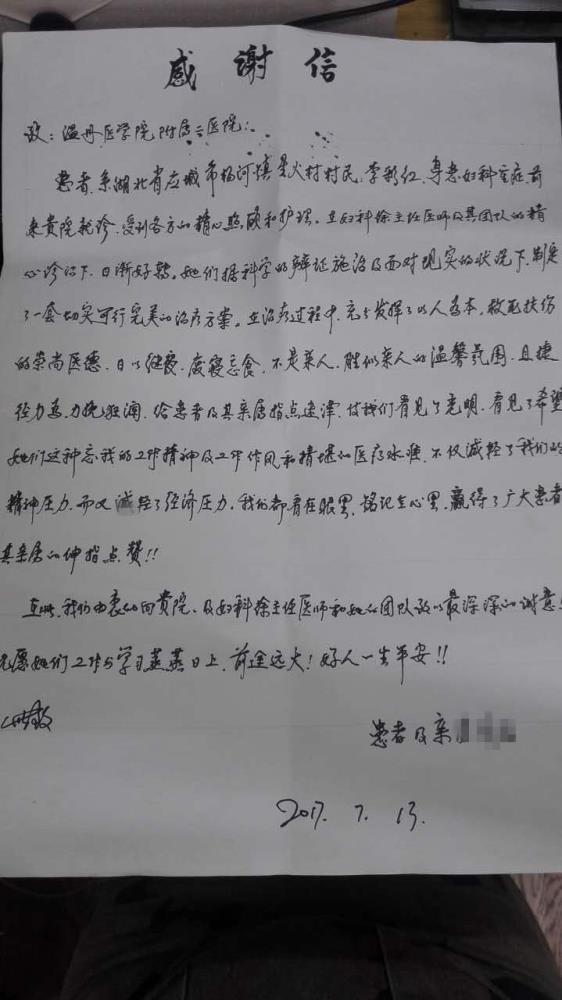 感谢信
致：温州医学院附属二医院：
患者,系湖北省应城市杨河镇星火村村民,李彩红,身患妇科重症,前
来贵院就诊,受到各方的精心照顾和护理。在妇科徐主任医师及其团队的精
心诊治下,日渐好转。她们据科学的辩证施治及面对现实的状况下,制定
了一套切实可行完美的治疗方案。在治疗过程中,充分发挥了以人为本,救死扶伤
的崇尚医德,日以继夜,废寝忘食,不是亲人,胜似亲人的温馨氛围,且捷
径力Ⅰ,力挽狂澜,给患者及其亲属指点迷津,使我们看见了光明,看见了希望
她们这种忘我的工作精神及工作作风和精湛的医疗水准,不仅减轻了我们的
精神压力,而又减轻了经济压力,我们都看在眼里,铭记在心里,赢得了广大患者
其亲属的伸指点赞!!
在此,我们由衷的向贵院,及妇科徐主任医师和她的团队致以最深深的谢意
祝愿她们工作与学习蒸蒸日上,前途远大!好人一生平安!!
此致
患者及亲
2017.7.13.